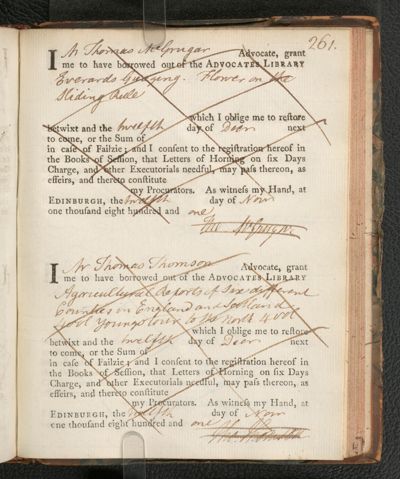 261.
I Mr Thomas McGrugar Advocate, grant
me to have borrowed out of the ADVOCATES LIBRARY
Everards Guaging. Flower on the
Sliding Rule
which I oblige me to reſtore
betwixt and the twelfth day of Decr next
to come, or the Sum of
in caſe of Failzie; and I conſent to the regiſtration hereof in
the Books of Seſſion, that Letters of Horning on ſix Days
Charge, and other Executorials needful, may paſs thereon, as
effeirs, and thereto conſtitute
my Procurators. As witneſs my Hand, at
EDINBURGH, the twelfth day of Novr
one thouſand eight hundred and one
Tho. McGrugar
I Mr Thomas Thomson Advocate, grant
me to have borrowed out of the ADVOCATES LIBRARY
Agricultural Reports of different
Counties in England and Scotland
Youngs tour to the North 4 vol
which I oblige me to reſtore
betwixt and the twelfth day of Decr next
to come, or the Sum of
in caſe of Failzie; and I conſent to the regiſtration hereof in
the Books of Seſſion, that Letters of Horning on ſix Days
Charge, and other Executorials needful, may paſs thereon, as
effeirs, and thereto conſtitute
my Procurators. As witneſs my Hand, at
EDINBURGH, the twelfth day of Novr
one thouſand eight hundred and one